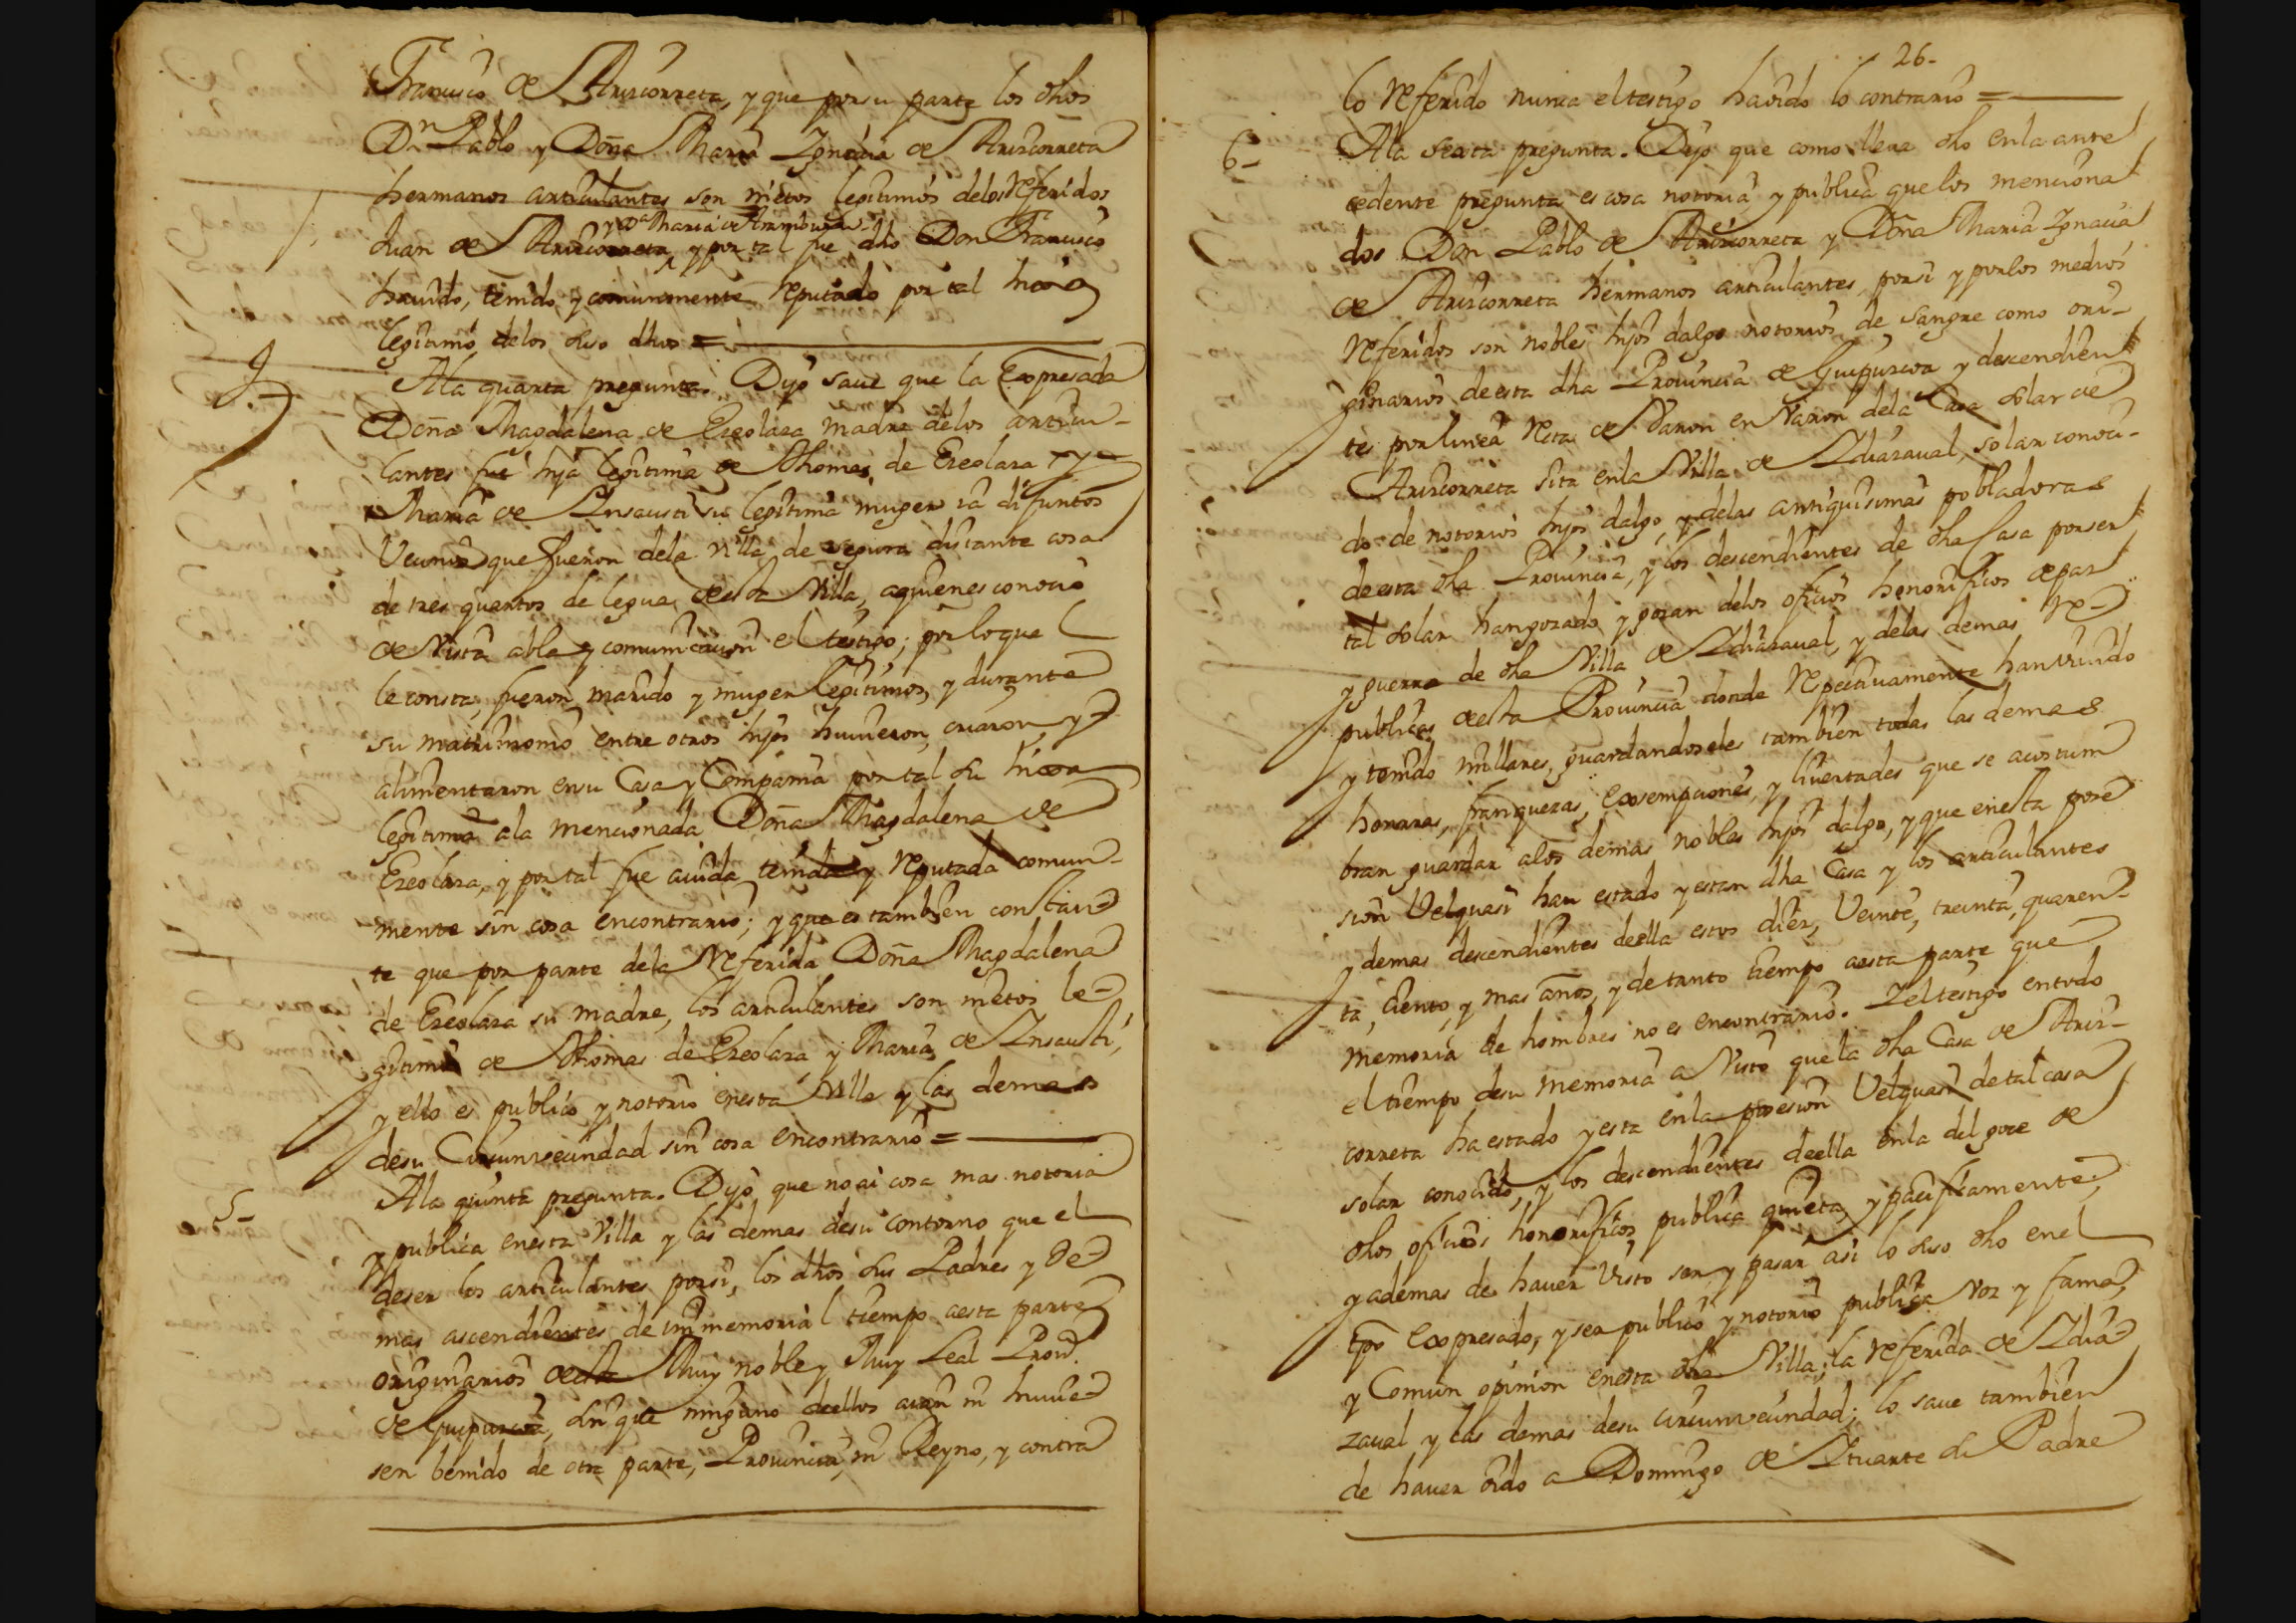 Francisco de Arizcorreta, y que por su parte los dhos
Dn Pablo y Doña Maria Ygnacia de Arizcorreta
hermanos articulantes son nietos legitimos delos Referidos
Juan de Arizcorreta, y Da Maria de Aramburu y por tal fue dho Don Francisco
hauido, tenido, y comunmente Reputado por tal hijo
legitimo delos suso dhos =
4-
Ala quarta pregunta. Dijo saue que la Expresada
Doña Magdalena de Ezeolaza madre delos articu-
lantes fue hija legitima de Thomas de Ezeolaza y
Maria de Ynsausti su legitima muger ia difuntos
Vecinos que fueron dela Villa de segura distante cosa
de tres quartos de legua desta Villa, aquienes conocio
de Vista abla y comunicacion el testigo; por loque
le consta, fueron marido y muger legitimos, y durante
su matrimonio entre otros hijos huuieron, criaron, y
alimentaron ensu Casa y Compania por tal su hija
legitima ala mencionada Doña Magdalena de
Ezeolaza, y por tal fue auida tenida y Reputada comun-
mente sin cosa encontrario; y que es tambien constan-
te que por parte dela Referida Doña Magdalena
de Ezeolaza su madre, los articulantes son nietos le-
gitimos de Thomas de Ezeolaza, y Maria de Ynsausti,
y ello es publico y notorio enesta Villa y las demas
desu Circunvecindad sin cosa encontrario =
5-
Ala quinta pregunta. Dijo que no ai cosa mas notoria
y publica enesta Villa y las demas desu contorno que el
deser los articulantes porsi, los dhos sus Padres y De-
mas ascendientes de immemorial tiempo aesta parte
originarios desta Muy noble y Muy Leal Prova
de Guipuzcoa, sin que ninguno deellos aian ni huuie-
sen benido de otra parte, Prouincia, ni Reyno, y contra
26-
lo Referido nunca el testigo ha oido lo contrario =
6-
Ala sexta pregunta. Dijo que como lleua dho enla ante
cedente pregunta es cosa notoria y publica que los menciona
dos Don Pablo de Arizcorreta y Doña Maria Ygnacia
de Arizcorreta hermanos articulantes, porsi y por los medios
Referidos son nobles hijos dalgo notorios de sangre como ori-
ginarios deesta dha Prouincia de Guipuzcoa y descendien
tes por linea Reta de Varon en Varon dela Casa solar de
Arizcorreta sita enla Villa de Ydiazaual, solar conoci-
do de notorios hijos dalgo, y delas antiquisimas pobladoras
deesta dha Prouincia, y los descendientes de dha Casa por ser
tal solar han gozado y gozan delos oficios honorificos de paz
y guerra de dha Villa de Ydiazaual, y delas demas Re-
publicas desta Prouincia donde Respectiuamente han viuido
y tenido millares, guardandoseles tambien todas las demas
honrras, franquezas, Exsempciones, y liuertades que se acostum
bran guardar alos demas nobles hijos dalgo, y que enesta pose
sion Velquasi han estado y estan dha Casa y los articulantes
y demas descendientes deella estos diez, Veinte, treinta, quaren-
ta, ciento, y mas años, y de tanto tiempo aesta parte que
memoria de hombres no es encontrario. Y el testigo entodo
el tiempo desu memoria a Visto que la dha Casa de Ariz-
correta ha estado y esta enla posesion Velquasi de tal casa
solar conocido, y los descendientes deella enla del goce de
dhos oficios honorificos, publica quieta, y pacificamente,
y ademas de hauer Visto ser y pasar asi lo suso dho enel
tpo Expresado, y ser publico y notorio publica Voz y fama,
y Comun opinion enesta dha Villa, la referida de Ydia-
zaual y las demas desu circunvecindad; lo saue tambien
de hauer oido a Domingo de Yturte su Padre